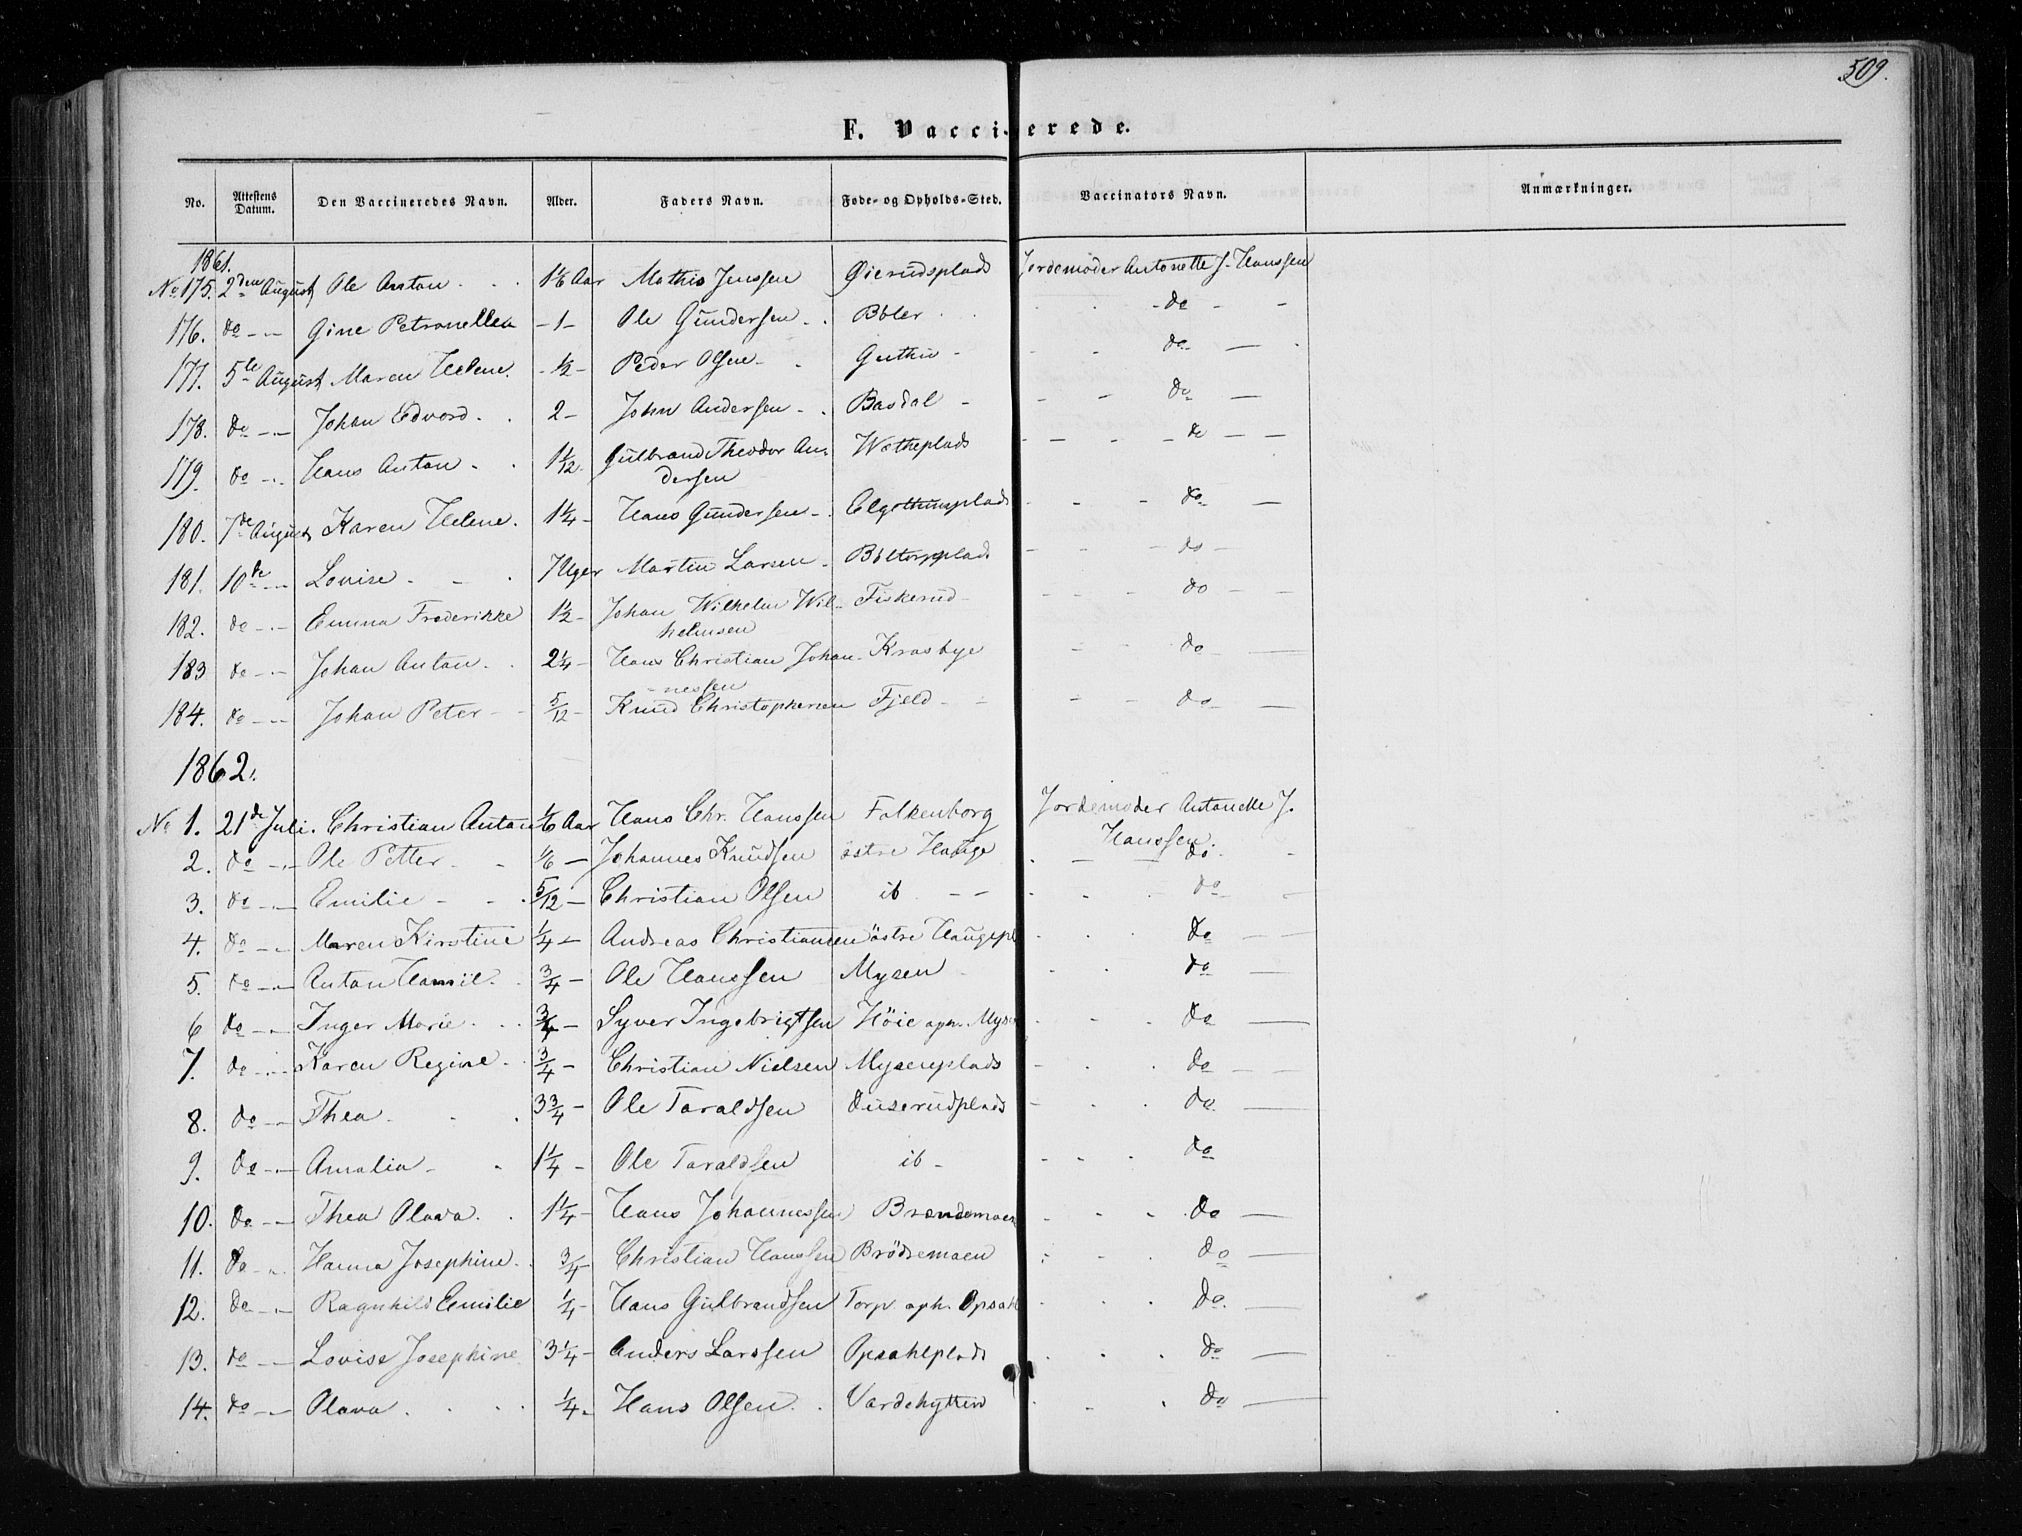 509.
F. Vaccinerede.
No. Attestens Datum. Den Vaccineredes Navn. Alder. Faders Navn. Føde- og Opholds-Sted. Vaccinators Navn. Anmærkninger.
1861.
No 175. 2den August Ole Anton 1 1/6 Aar Mathis Jenssen Øierudsplads Jordemoder Antonette J. Hanssen
176. do Gine Petronella - 1 - Ole Gundersen Böler do
177. 5te August Maren Helene. - 1/2 - Peder Olsen Guthu do
178. do Johan Edvard 2 - John Andersen Basdal do
179. do Hans Anton 1 1/12 Gulbrand Theodor An- Wetheplads do
dersen
180. 7de August Karen Helene. 1 1/4 - Hans Gundersen Elgethunplads do
181. 10de Lovise 7 Uger Martin Larsen Böltorpplads do
182. do Emma Frederikke 1 1/2 - Johan Wilhelm Wil- Fiskerud do
helmsen
183 do Johan Anton 2 1/4 - Hans Christian Johan- Krosbye do
nessen
184. do Johan Peter 5/12 - Knud Christophersen Fjeld do
1862.
No 1. 21de Juli. Christian Anton 1/6 Aar Hans Chr. Hanssen Falkenborg Jordemoder Antonette J.
Hanssen
2. do Ole Petter 1/6 - Johannes Knudsen östre Hauge do
3. do Emilie 5/12 - Christian Olsen ib do
4. do Maren Kirstine 1/4 - Andreas Christiansen östre Haugepl do
5. do Anton Hamil 3/4 - Ole Hanssen Mysen do
6 do Inger Marie 3/4 - Syver Ingebrigtsen Höie oph. Mysen do
7. do Karen Regine 3/4 - Christian Nielsen Mysenplads do
8. do Thea 3 3/4 - Ole Taraldsen Duserudplads do
9. do Amalia 1 1/4 - Ole Taraldsen ib do
10. do Thea Olava 1 1/4 - Hans Johannessen Brandemoen do
11. do Hanna Josephine 3/4 - Christian Hanssen Brödremoen do
12. do Ragnhild Emilie 1/4 - Hans Gulbrandsen Torp oph. Opsahl do
13. do Lovise Josephine 3 1/4 - Anders Larssen Opsahlplads do
14. do Olava 1/4 - Hans Olsen Vardehytten do